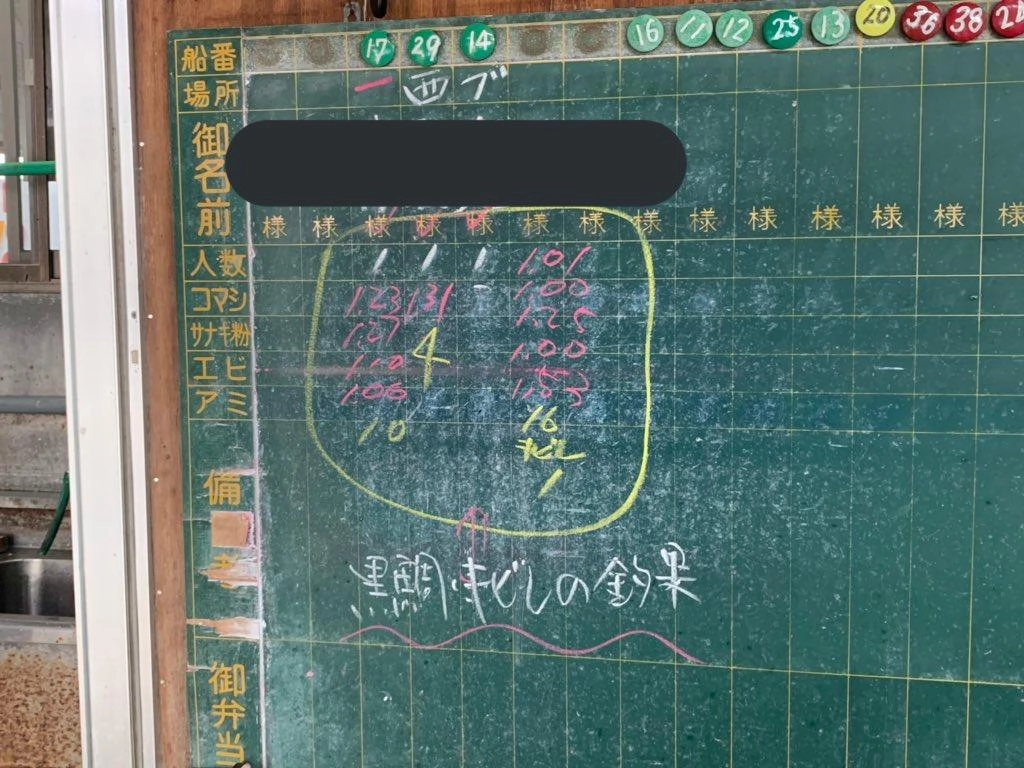 船番 17 29 14 16 17 12 25 13 20 36 38
場所 一 西 ブ
御名前
様 様 様 様 様 様 様 様 様 様 様 様 様 様
人数 1 1 1 1.01
コマシ 1.23 131 1.00
サナギ粉 1.37 1.25
エビ 110 4 1.00
アミ 106 1.53
10 16
キビレ
1
備考
黒鯛まどしの釣果
御弁当